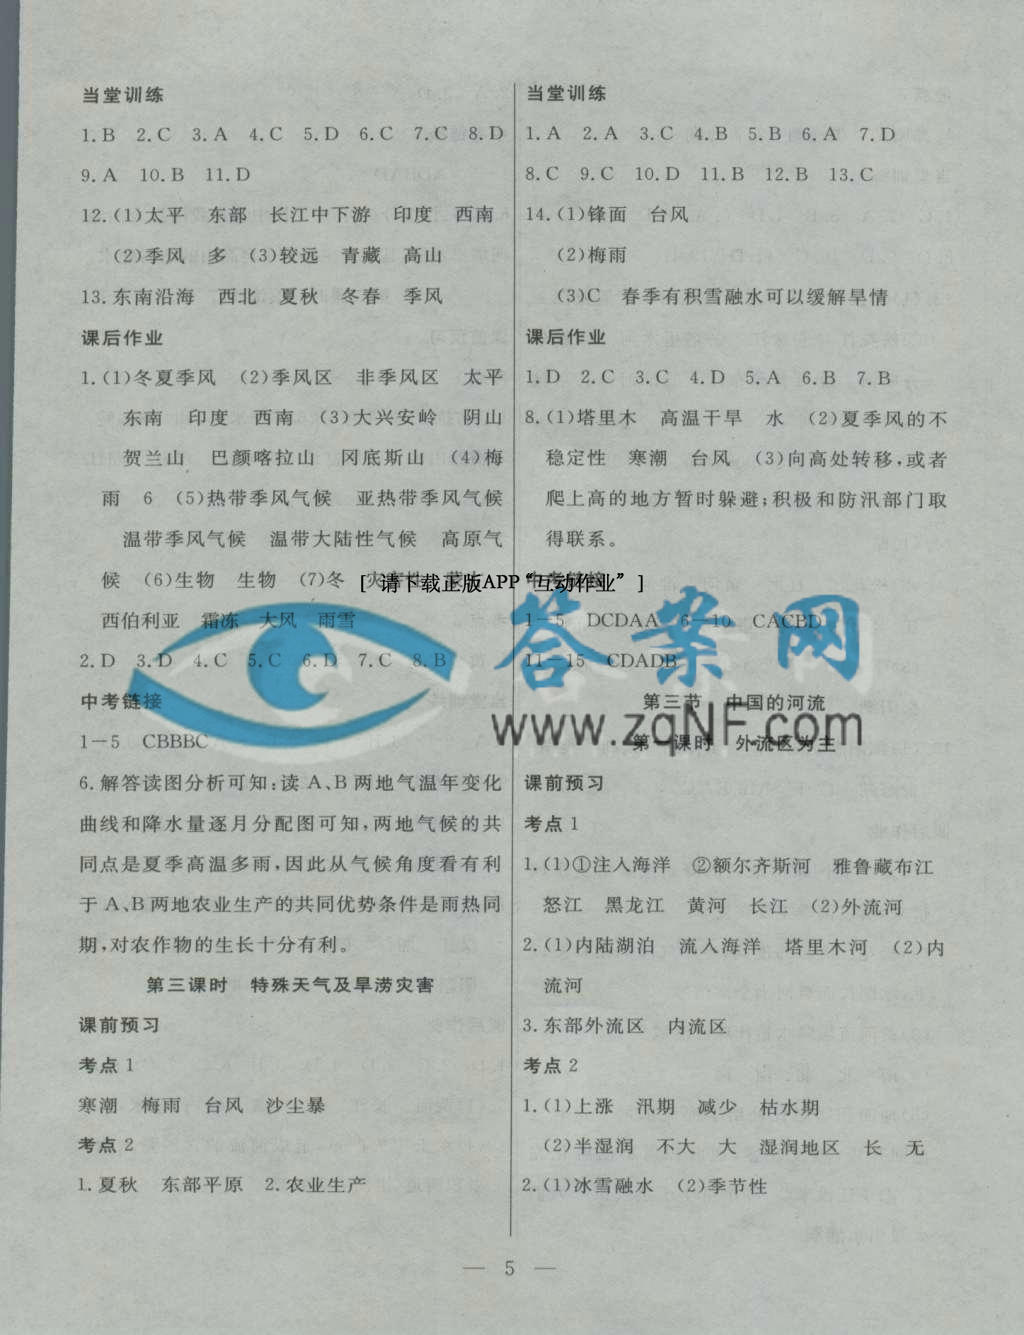 当堂训练
1.B 2.C 3.A 4.C 5.D 6.C 7.C 8.D
9.A 10.B 11.D
12.(1)太平 东部 长江中下游 印度 西南
(2)季风 多 (3)较远 青藏 高山
13.东南沿海 西北 夏秋 冬春 季风
课后作业
1.(1)冬夏季风 (2)季风区 非季风区 太平
东南 印度 西南 (3)大兴安岭 阴山
贺兰山 巴颜喀拉山 冈底斯山 (4)梅
雨 6 (5)热带季风气候 亚热带季风气候
温带季风气候 温带大陆性气候 高原气
候 (6)生物 生物 (7)冬
西伯利亚 霜冻 大风 雨雪
2.D 3.D 4.C 5.C 6.D 7.C 8.B
中考链接
1－5 CBBBC
6.解答读图分析可知:读A、B两地气温年变化
曲线和降水量逐月分配图可知,两地气候的共
同点是夏季高温多雨,因此从气候角度看有利
于A、B两地农业生产的共同优势条件是雨热同
期,对农作物的生长十分有利。
第三课时 特殊天气及旱涝灾害
课前预习
考点1
寒潮 梅雨 台风 沙尘暴
考点2
1.夏秋 东部平原 2.农业生产
当堂训练
1.A 2.A 3.C 4.B 5.B 6.A 7.D
8.C 9.C 10.D 11.B 12.B 13.C
14.(1)锋面 台风
(2)梅雨
(3)C 春季有积雪融水可以缓解旱情
课后作业
1.D 2.C 3.C 4.D 5.A 6.B 7.B
8.(1)塔里木 高温干旱 水 (2)夏季风的不
稳定性 寒潮 台风 (3)向高处转移,或者
爬上高的地方暂时躲避;积极和防汛部门取
得联系。
[ 请下载正版APP“互动作业” ]
1－5 DCDAA 6－10 CACBD
11－15 CDADB
答案网
www.zqNF.com
第三节 中国的河流
第一课时 外流区为主
课前预习
考点1
1.(1)①注入海洋 ②额尔齐斯河 雅鲁藏布江
怒江 黑龙江 黄河 长江 (2)外流河
2.(1)内陆湖泊 流入海洋 塔里木河 (2)内
流河
3.东部外流区 内流区
考点2
1.(1)上涨 汛期 减少 枯水期
(2)半湿润 不大 大 湿润地区 长 无
2.(1)冰雪融水 (2)季节性
— 5 —